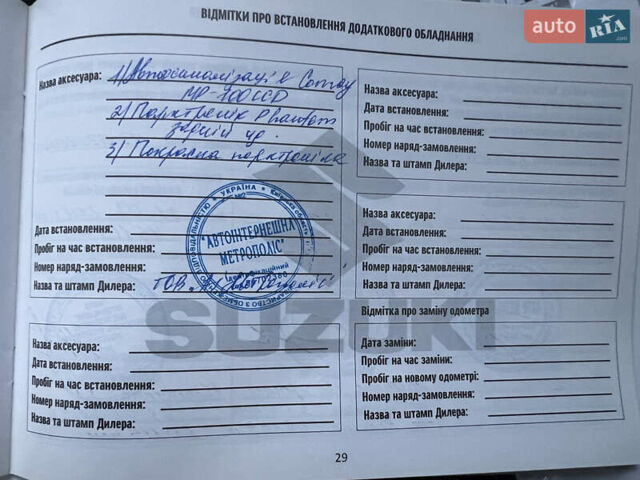 ВІДМІТКИ ПРО ВСТАНОВЛЕННЯ ДОДАТКОВОГО ОБЛАДНАННЯ
auto RIA .com
Назва аксесуара: 1) Автосигналізація
2) Парктронік Phantom
задній
3) Покраска парктроніка
Дата встановлення:
Пробіг на час встановлення:
Номер наряд-замовлення:
Назва та штамп Дилера: ТОВ
УКРАЇНА
"АВТОІНТЕРНЕШНЛ
МЕТРОПОЛІС"
Назва аксесуара:
Дата встановлення:
Пробіг на час встановлення:
Номер наряд-замовлення:
Назва та штамп Дилера:
Назва аксесуара:
Дата встановлення:
Пробіг на час встановлення:
Номер наряд-замовлення:
Назва та штамп Дилера:
Назва аксесуара:
Дата встановлення:
Пробіг на час встановлення:
Номер наряд-замовлення:
Назва та штамп Дилера:
Відмітка про заміну одометра
Дата заміни:
Пробіг на час заміни:
Пробіг на новому одометрі:
Номер наряд-замовлення:
Назва та штамп Дилера:
SUZUKI
29